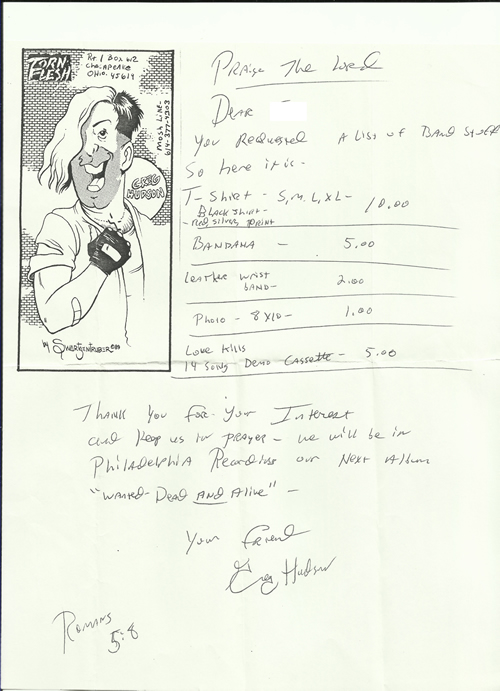 TORN FLESH
Rt. 1 Box W2
Chesapeake
Ohio. 45619
Mosh Line-
614-377-4203
GREG HUDSON
by
Praise The Lord
Dear
You Requested A List of Band Stuff
So here it is -
T-Shirt - S, M, L, XL - 10.00
Black Shirt -
- Red, silver, print
Bandana - 5.00
Leather wrist band - 2.00
Photo - 8x10 - 1.00
Love Kills
14 song Demo Cassette - 5.00
Thank You for Your Interest
and keep us in prayer - we will be in
Philadelphia Recording our Next Album
"Wanted - Dead AND Alive" -
Your friend
Greg Hudson
Romans
5:8